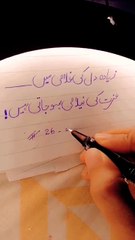 زیادہ دل کی غلامی میں ____
عزت کی نیلامی ہو جاتی ہیں!
# 26 -